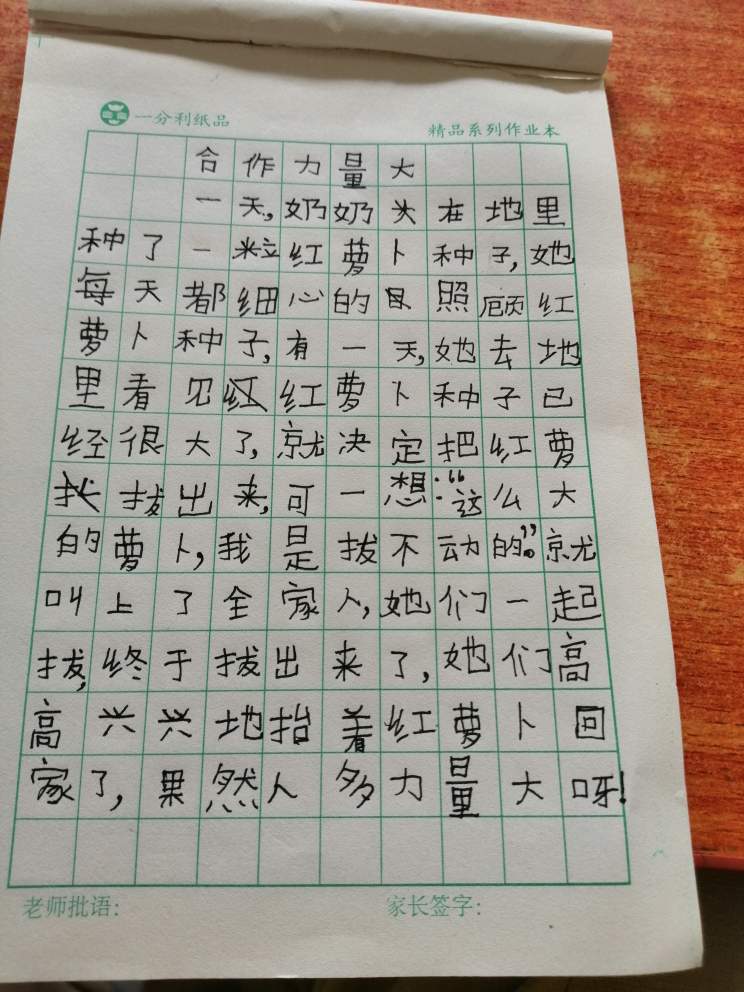 一分利纸品
精品系列作业本
合作力量大
一天,奶奶在地里
种了一粒红萝卜种子,她
每天都细心的照顾红
萝卜种子,有一天,她去地
里看见红萝卜种子已
经很大了,就决定把红萝
拔出来,可一想:“这么大
的萝卜,我是拔不动的”。就
叫上了全家人,她们一起
拔,终于拔出来了,她们高
高兴兴地抬着红萝卜回
家了,果然人多力量大呀!
老师批语:
家长签字: